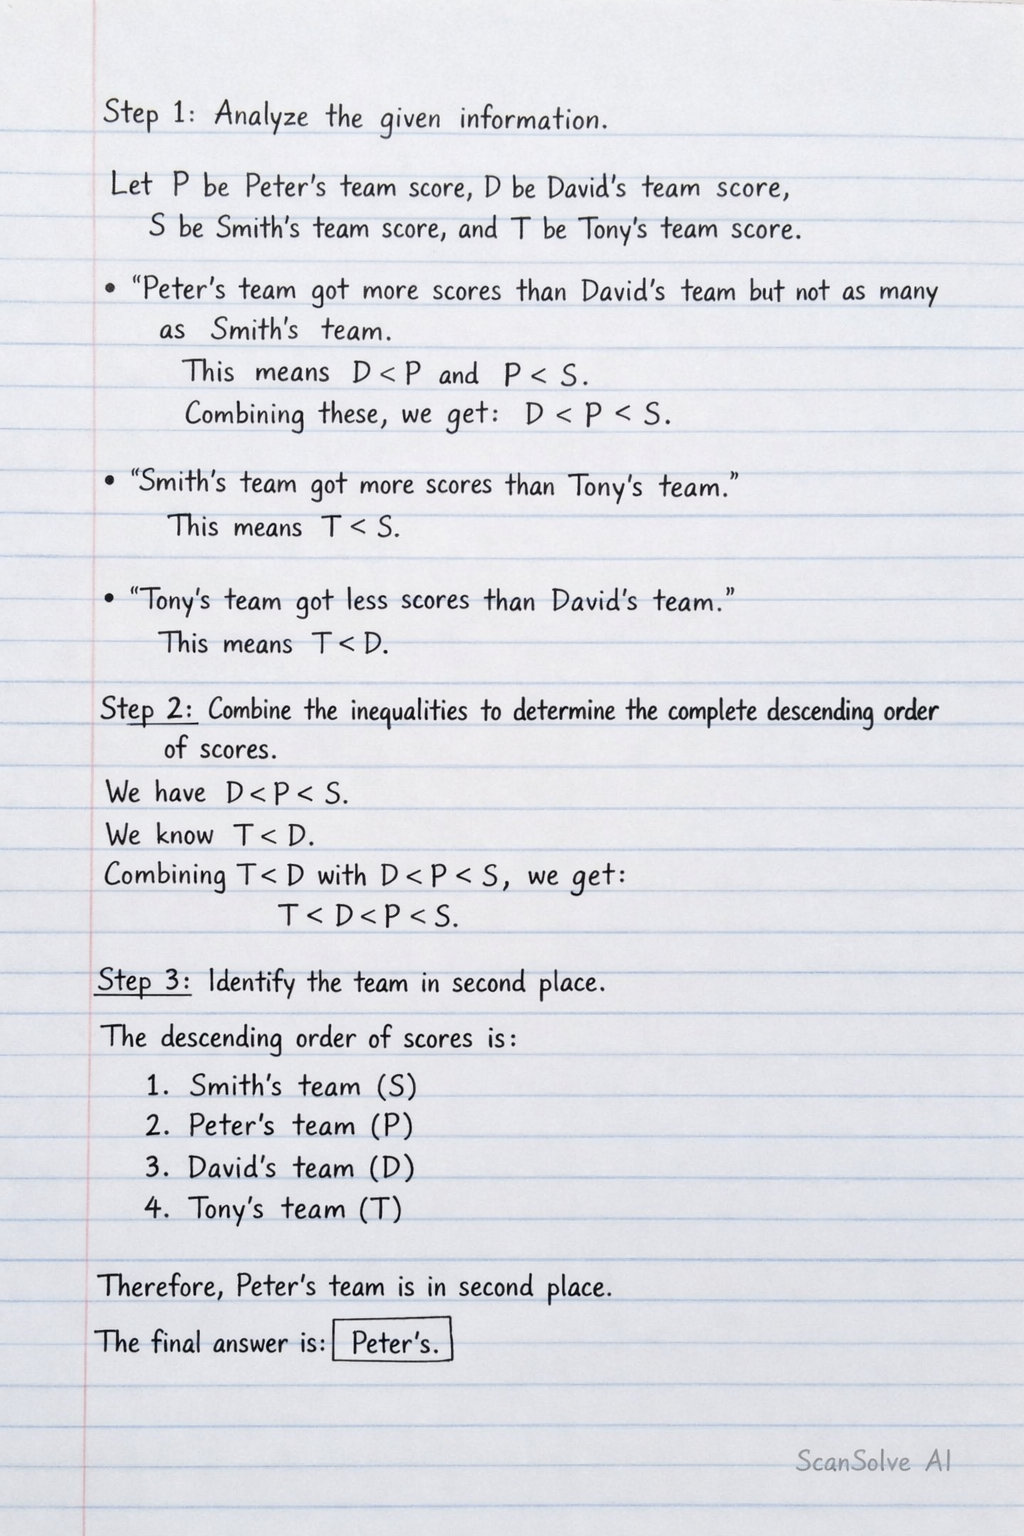 Step 1: Analyze the given information.
Let P be Peter's team score, D be David's team score,
S be Smith's team score, and T be Tony's team score.
• “Peter's team got more scores than David's team but not as many
as Smith's team.
This means D < P and P < S.
Combining these, we get: D < P < S.
• “Smith's team got more scores than Tony's team.”
This means T < S.
• “Tony's team got less scores than David's team.”
This means T < D.
Step 2: Combine the inequalities to determine the complete descending order
of scores.
We have D < P < S.
We know T < D.
Combining T < D with D < P < S, we get:
T < D < P < S.
Step 3: Identify the team in second place.
The descending order of scores is:
1. Smith's team (S)
2. Peter's team (P)
3. David's team (D)
4. Tony's team (T)
Therefore, Peter's team is in second place.
The final answer is: Peter's.
ScanSolve AI